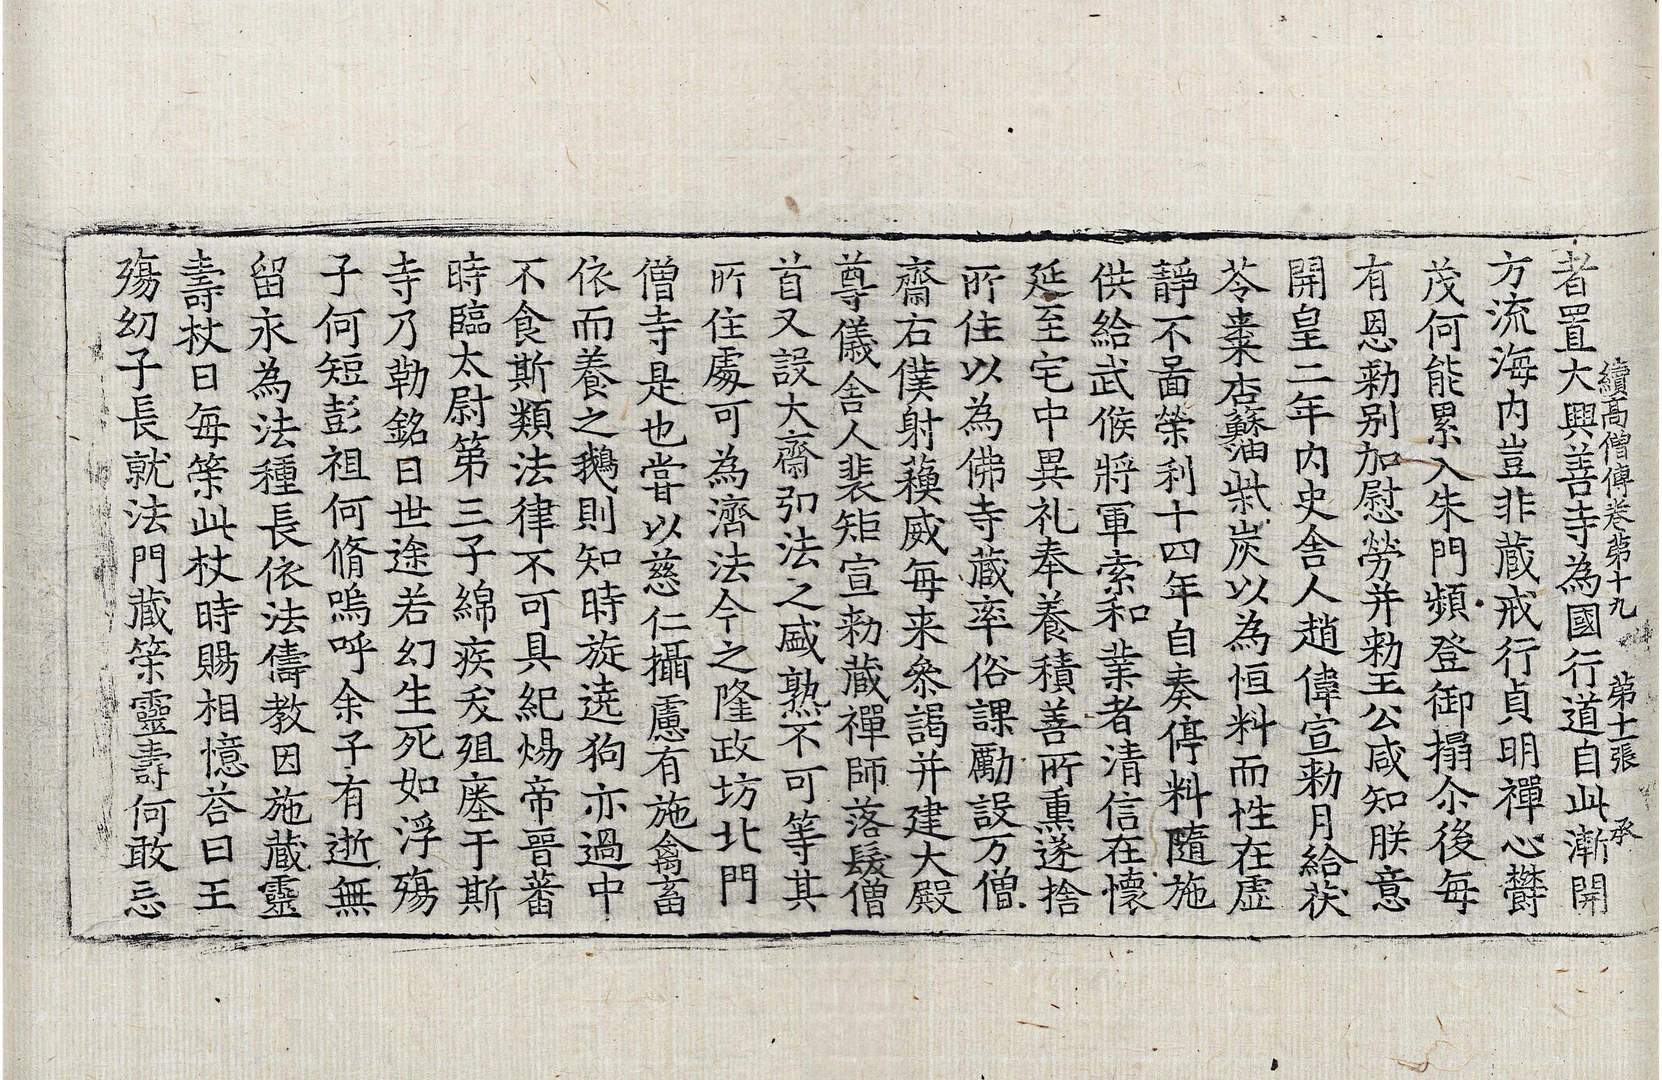 續高僧傳卷第十九　第十一張　承
者置大興善寺為國行道自此漸開
方流海內豈非藏戒行貞明禪心欝
茂何能累入朱門頻登御搨尒後每
有恩勑別加慰勞并勑王公咸知朕意
開皇二年內史舍人趙偉宣勑月給茯
苓棗杏蘇油柴炭以為恒料而性在虛
靜不啚榮利十四年自奏停料隨施
供給武候將軍索和業者清信在懷
延至宅中異礼奉養積善所熏遂捨
所住以為佛寺藏率俗課勵設万僧
齋右僕射蘇威每来叅謁并建大殿
尊儀舍人裴矩宣勑藏禪師落髮僧
首又設大齋弘法之盛熟不可等其
所住處可為濟法今之隆政坊北門
僧寺是也嘗以慈仁攝慮有施禽畜
依而養之鵝則知時旋遶狗亦過中
不食斯類法律不可具紀煬帝晉蕃
時臨太尉第三子綿疾夭殂瘞于斯
寺乃勒銘曰世途若幻生死如浮殤
子何短彭祖何脩嗚呼余子有逝無
留永為法種長依法儔教因施藏靈
壽杖曰每策此杖時賜相憶荅曰王
殤幼子長就法門藏策靈壽何敢忘